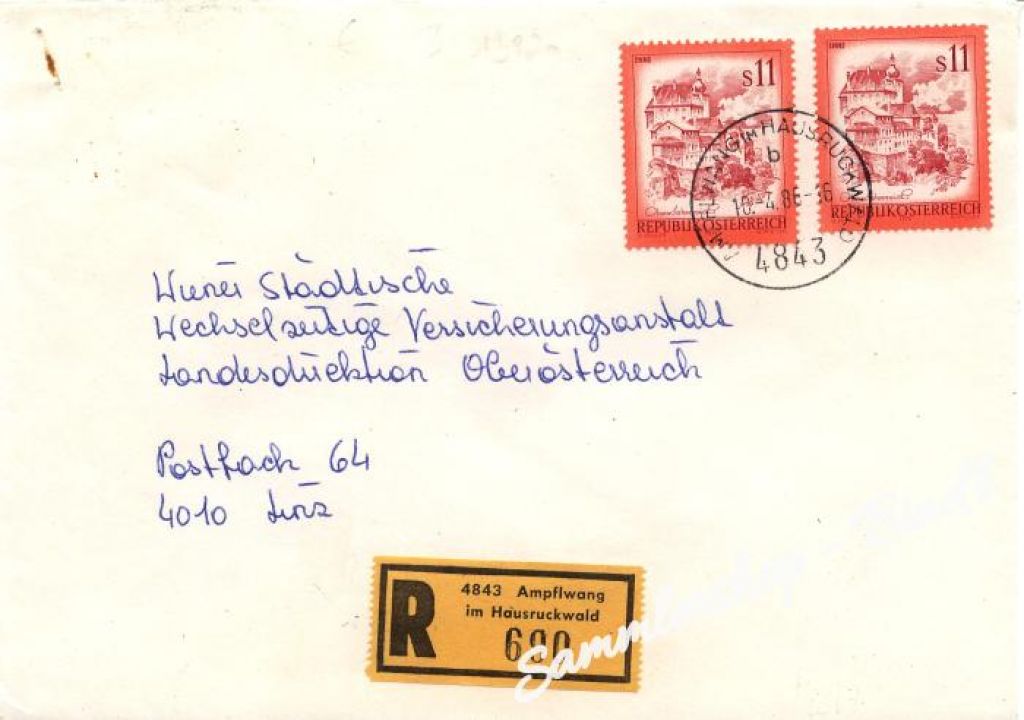 S11
S11
REPUBLIK ÖSTERREICH
REPUBLIK ÖSTERREICH
AMPFLWANG IM HAUSRUCKWALD
b
10.-4.86-16
4843
Wiener Städtische
Wechselzeitige Versicherungsanstalt
Landesdirektion Oberösterreich
Postfach 64
4010 Linz
R
4843 Ampflwang
im Hausruckwald
690
Sammlershop